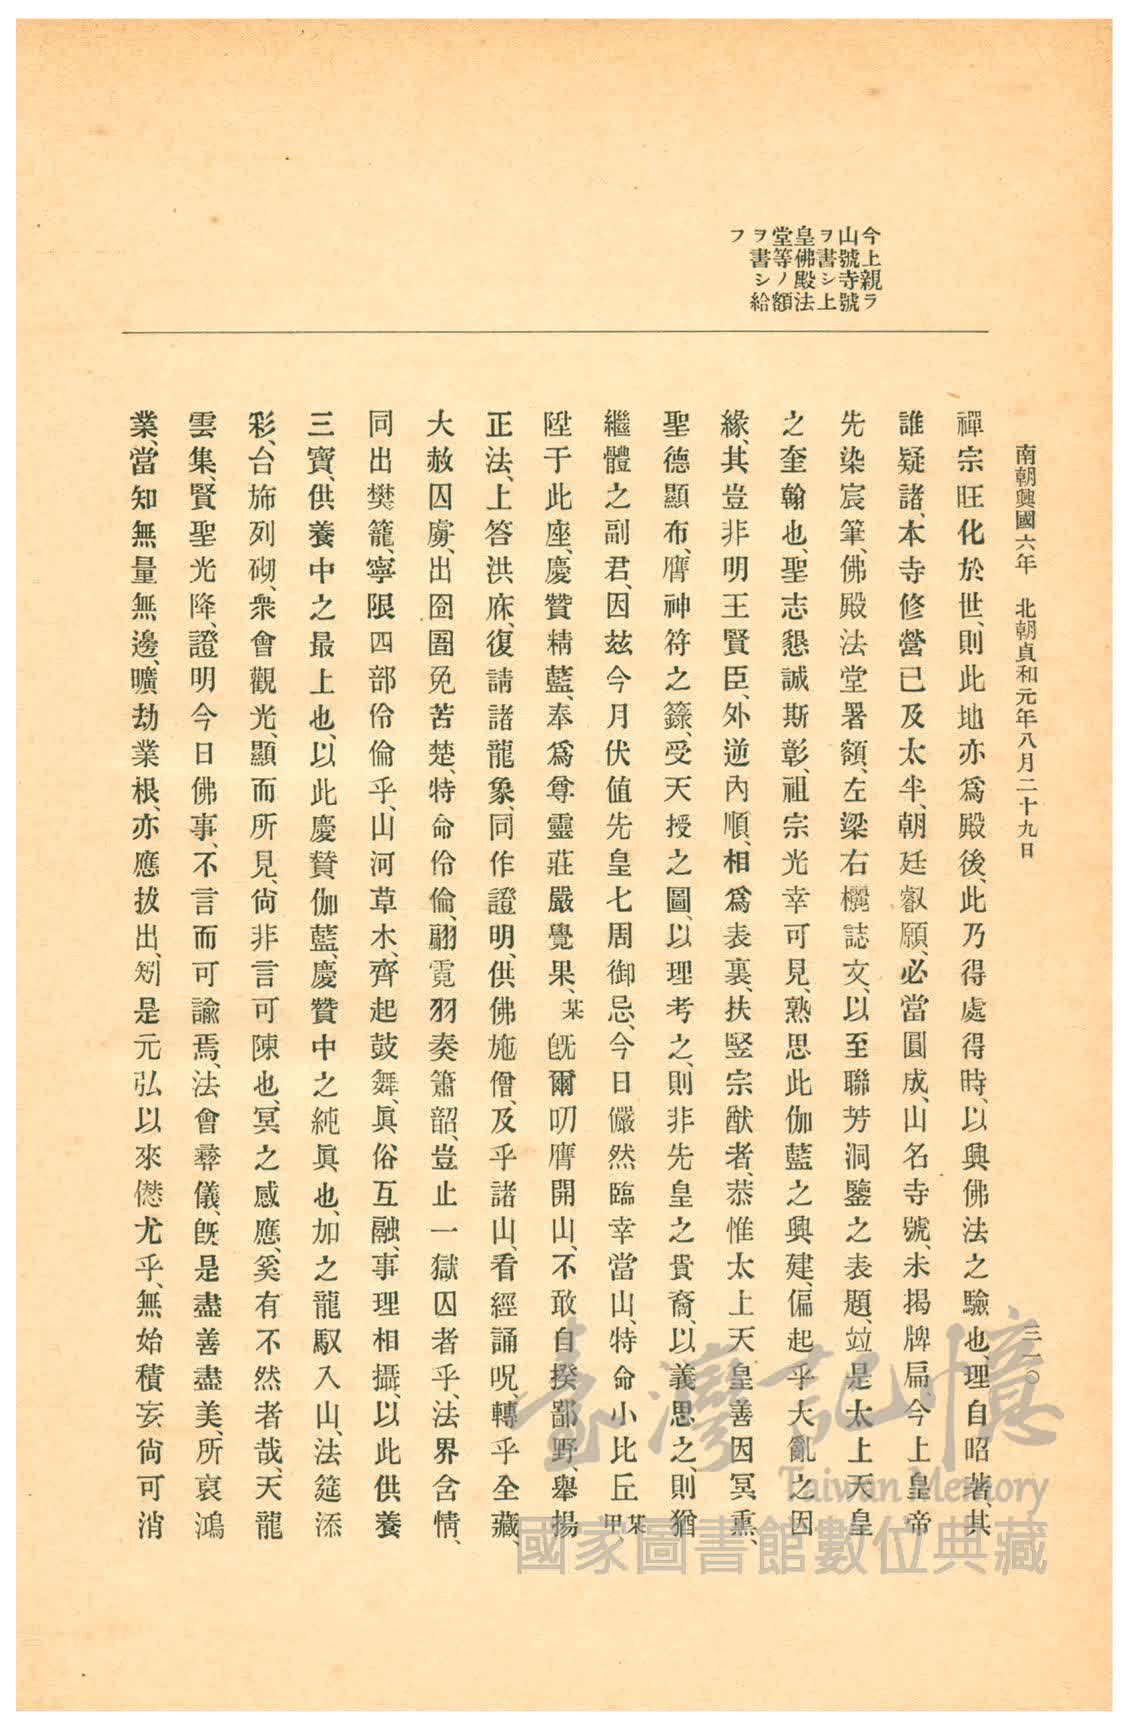 南朝興國六年　北朝貞和元年八月二十九日
三一〇
今上親ラ
山號寺號
ヲ書シ上
皇佛殿法
堂等ノ額
ヲ書シ給
フ
禪宗旺化於世、則此地亦爲殿後、此乃得處得時、以興佛法之驗也、理自昭著、其
誰疑諸、本寺修營已及太半、朝廷叡願、必當圓成、山名寺號、未揭牌扁、今上皇帝
先染宸筆、佛殿法堂署額、左梁右欐誌文、以至聯芳洞鑒之表題、竝是太上天皇
之奎翰也、聖志懇誠斯彰、祖宗光幸可見、熟思此伽藍之興建、偏起乎大亂之因
緣、其豈非明王賢臣、外逆內順、相爲表裏、扶竪宗猷者、恭惟太上天皇善因冥熏、
聖德顯布、膺神符之籙、受天授之圖、以理考之、則非先皇之貴裔、以義思之、則猶
繼體之副君、因玆今月伏值先皇七周御忌、今日儼然臨幸當山、特命小比丘某甲、
陞于此座、慶贊精藍、奉爲尊靈莊嚴覺果、某旣爾叨膺開山、不敢自揆鄙野、舉揚
正法、上答洪庥、復請諸龍象、同作證明、供佛施僧、及乎諸山、看經誦呪、轉乎全藏、
大赦囚虜、出囹圄免苦楚、特命伶倫、翮霓羽奏簫韶、豈止一獄囚者乎、法界含情、
同出樊籠、寧限四部伶倫乎、山河草木、齊起鼓舞、眞俗互融、事理相攝、以此供養
三寶、供養中之最上也、以此慶贊伽藍、慶贊中之純眞也、加之龍馭入山、法筵添
彩、台旆列砌、衆會觀光、顯而所見、尙非言可陳也、冥之感應、奚有不然者哉、天龍
雲集、賢聖光降、證明今日佛事、不言而可諭焉、法會彝儀、旣是盡善盡美、所裒鴻
業、當知無量無邊、曠劫業根、亦應拔出、矧是元弘以來僁尤乎、無始積妄尙可消
臺灣記憶
Taiwan Memory
國家圖書館數位典藏